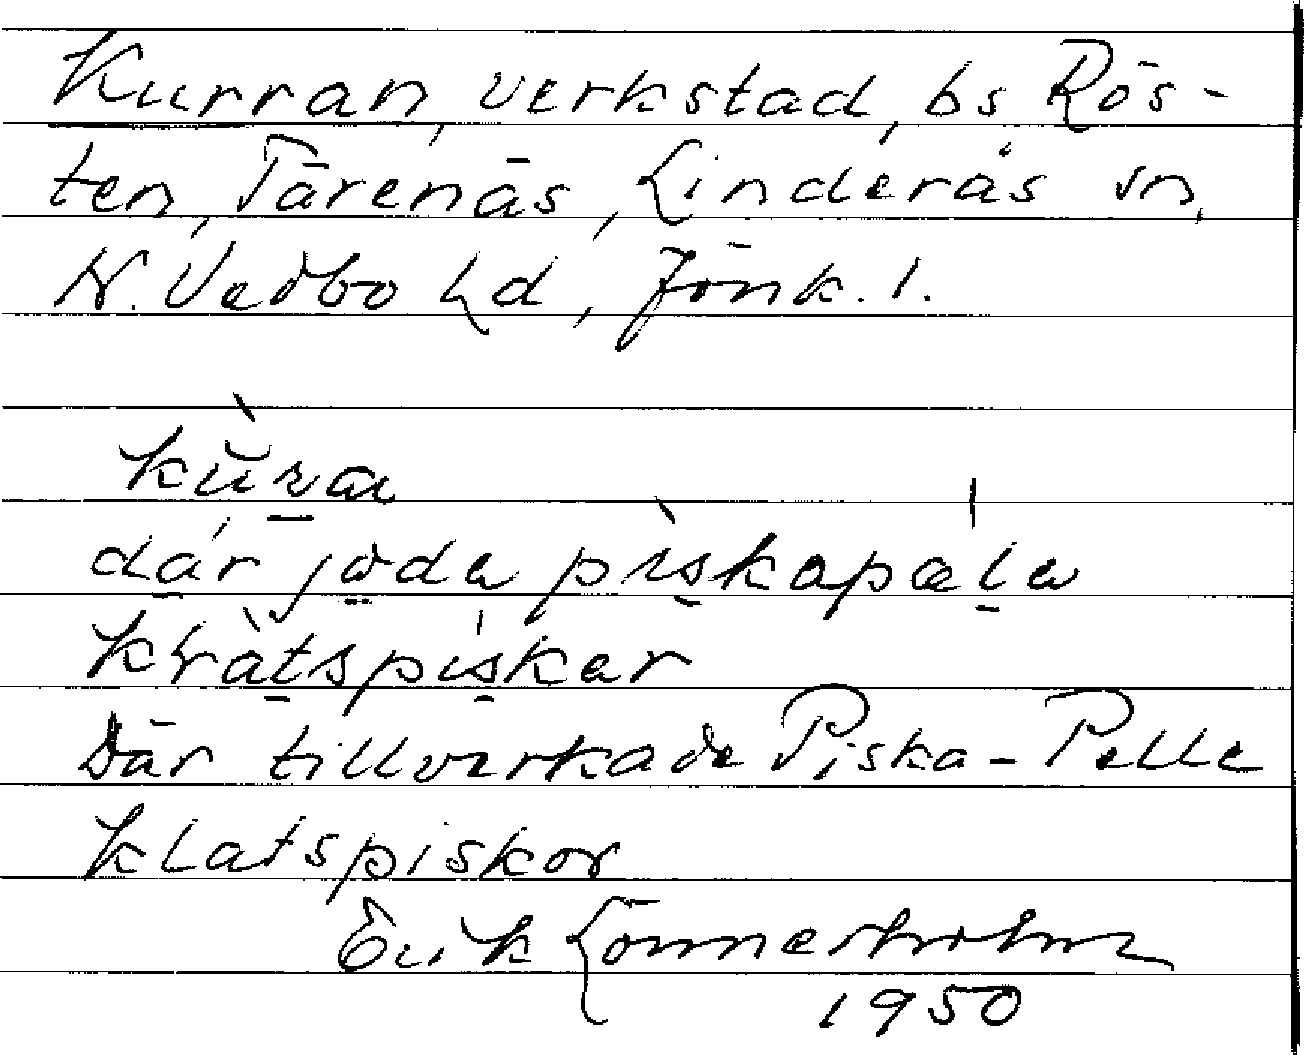 Kurran, verkstad, bs Rös-
ten, Tärenäs, Linderås sn,
N. Vedbo hd, Jönk. l.
kùra
dár joda pìskapæla
klàtspiskar
Där tillverkade Piska-Pelle
klatspiskor
Erik Lönnerholm
1950